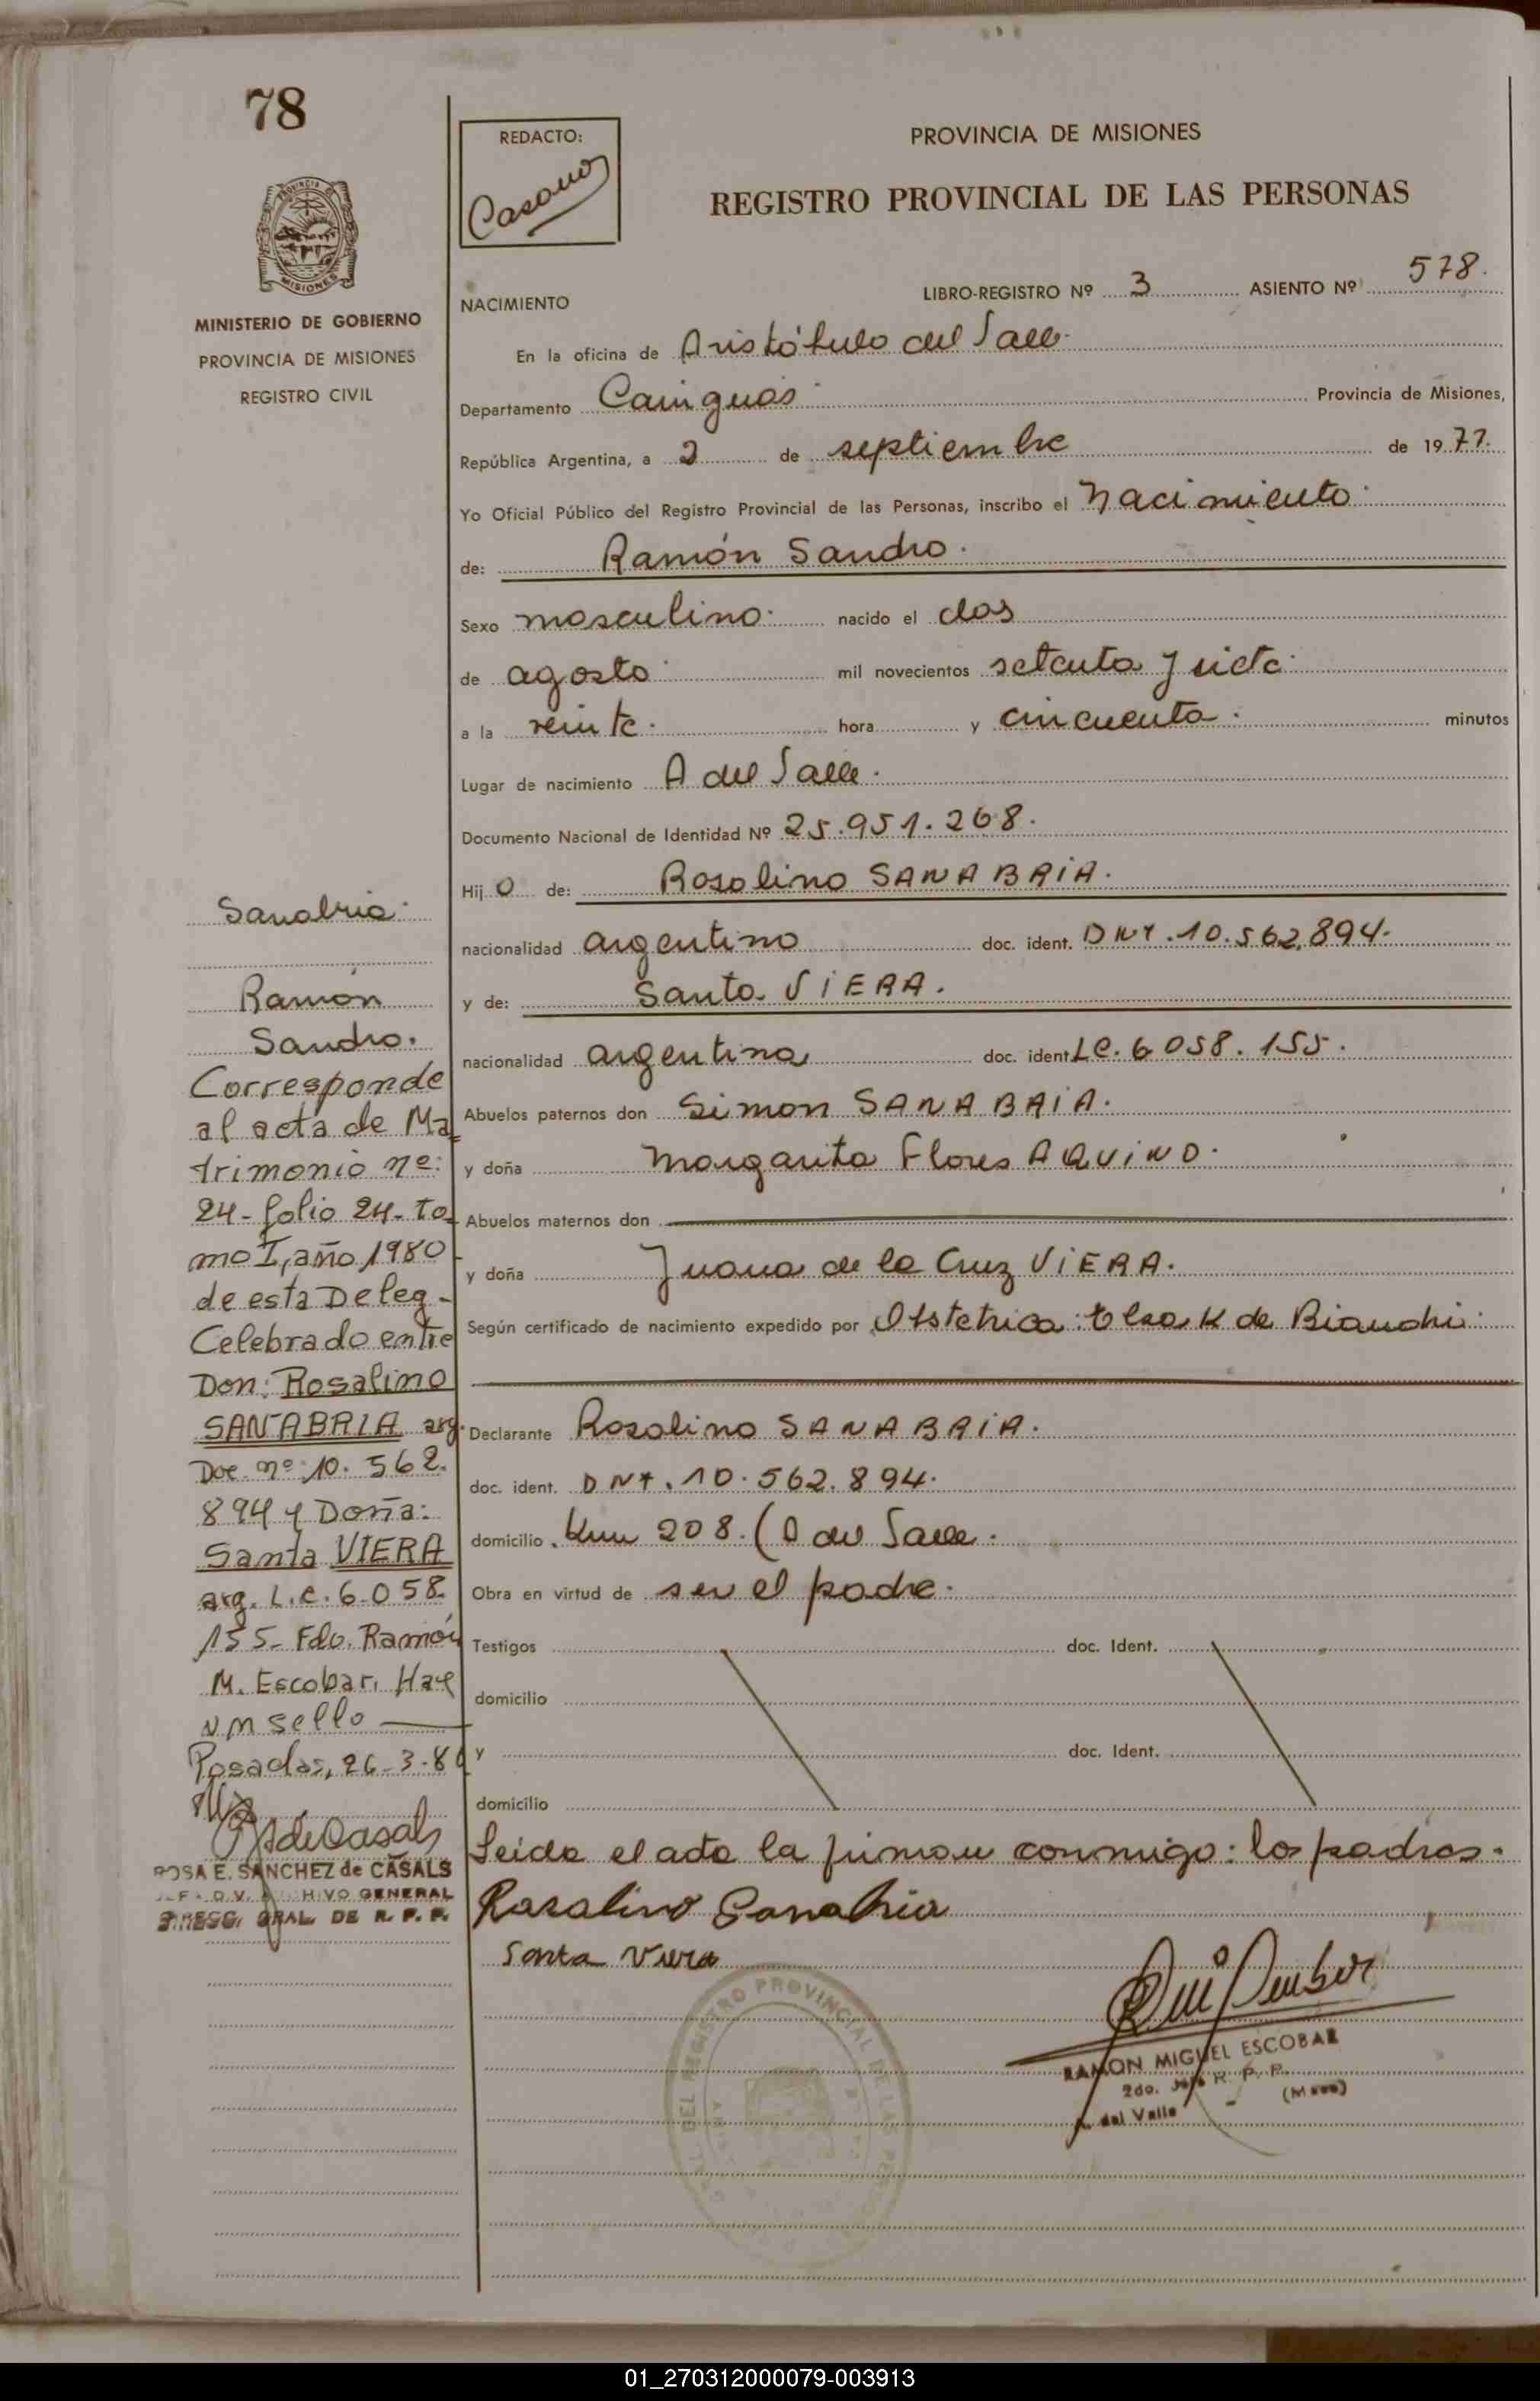 78
PROVINCIA DE MISIONES
REGISTRO PROVINCIAL DE LAS PERSONAS
REDACTO:
MISIONES
MINISTERIO DE GOBIERNO
PROVINCIA DE MISIONES
REGISTRO CIVIL
NACIMIENTO
LIBRO-REGISTRO Nº 3 ASIENTO Nº 578.
En la oficina de Aristóbulo del Valle.
Departamento Cainguás. Provincia de Misiones,
República Argentina, a 2 de septiembre de 1977.
Yo Oficial Público del Registro Provincial de las Personas, inscribo el Nacimiento.
de: Ramón Sandro.
Sexo masculino. nacido el dos
de agosto. mil novecientos setenta y siete.
a la veinte. hora y cincuenta. minutos
Lugar de nacimiento A del Valle.
Documento Nacional de Identidad Nº 25.951.268.
Hijo de: Rosalino SANABRIA.
nacionalidad argentino doc. ident. DNI.10.562.894.
y de: Santa VIERA.
nacionalidad argentina doc. ident LC. 6.058.155.
Abuelos paternos don Simon SANABRIA.
y doña Margarita Flores AQUINO.
Abuelos maternos don
y doña Juana de la Cruz VIERA.
Según certificado de nacimiento expedido por Obstetrica: Elsa K de Bianchi.
Declarante Rosalino SANABRIA.
doc. ident. DNI. 10.562.894.
domicilio. Km 208. (A del Valle.
Obra en virtud de ser el padre.
Testigos doc. Ident.
domicilio
y doc. Ident.
domicilio
Leida el acta la firman conmigo: los padres.
Rosalino Sanabria
Santa Viera
RAMON MIGUEL ESCOBAR
2do. Jefe R. P. P.
A. del Valle - (Mnes)
Sanabria.
Ramón
Sandro.
Corresponde
al acta de Ma
trimonio nº:
24- folio 24- To
mo I, año 1980
de esta Deleg-
Celebrado entre
Don: Rosalino
SANABRIA arg.
Doc. nº 10. 562.
894 y Doña:
Santa VIERA
arg. L.C. 6.058.
155- Fdo. Ramón
M. Escobar. Hay
un sello
Posadas, 26-3-80
ROSA E. SANCHEZ de CASALS
ARCHIVO GENERAL
DIRECC. GRAL. DE R. P. P.
01_270312000079-003913